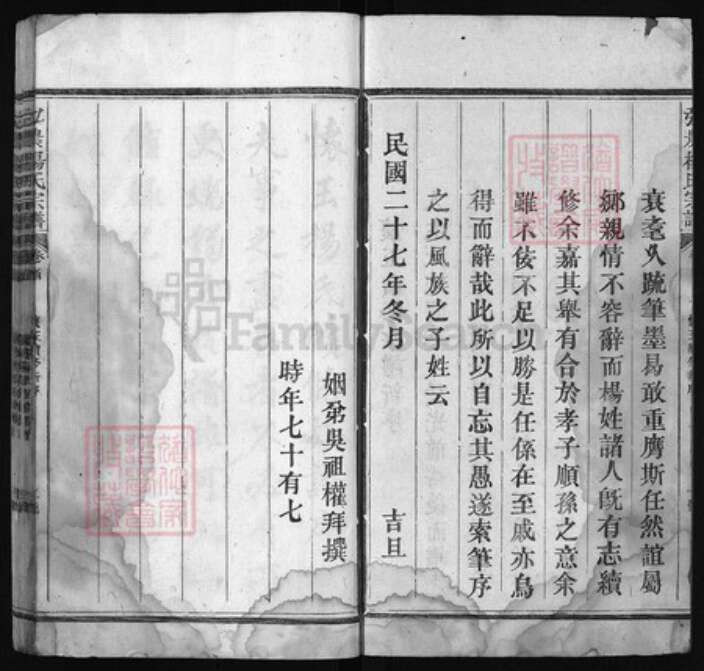 衰耄久疏筆墨曷敢重膺斯任然誼屬
鄉親情不容辭而楊姓諸人既有志續
修余嘉其舉有合於孝子順孫之意余
雖不佞不足以勝是任係在至戚亦烏
得而辭哉此所以自忘其愚遂索筆序
之以風族之子姓云
民國二十七年冬月 吉旦
姻弟吳祖權拜撰
時年七十有七
楊氏宗譜
FamilySearch